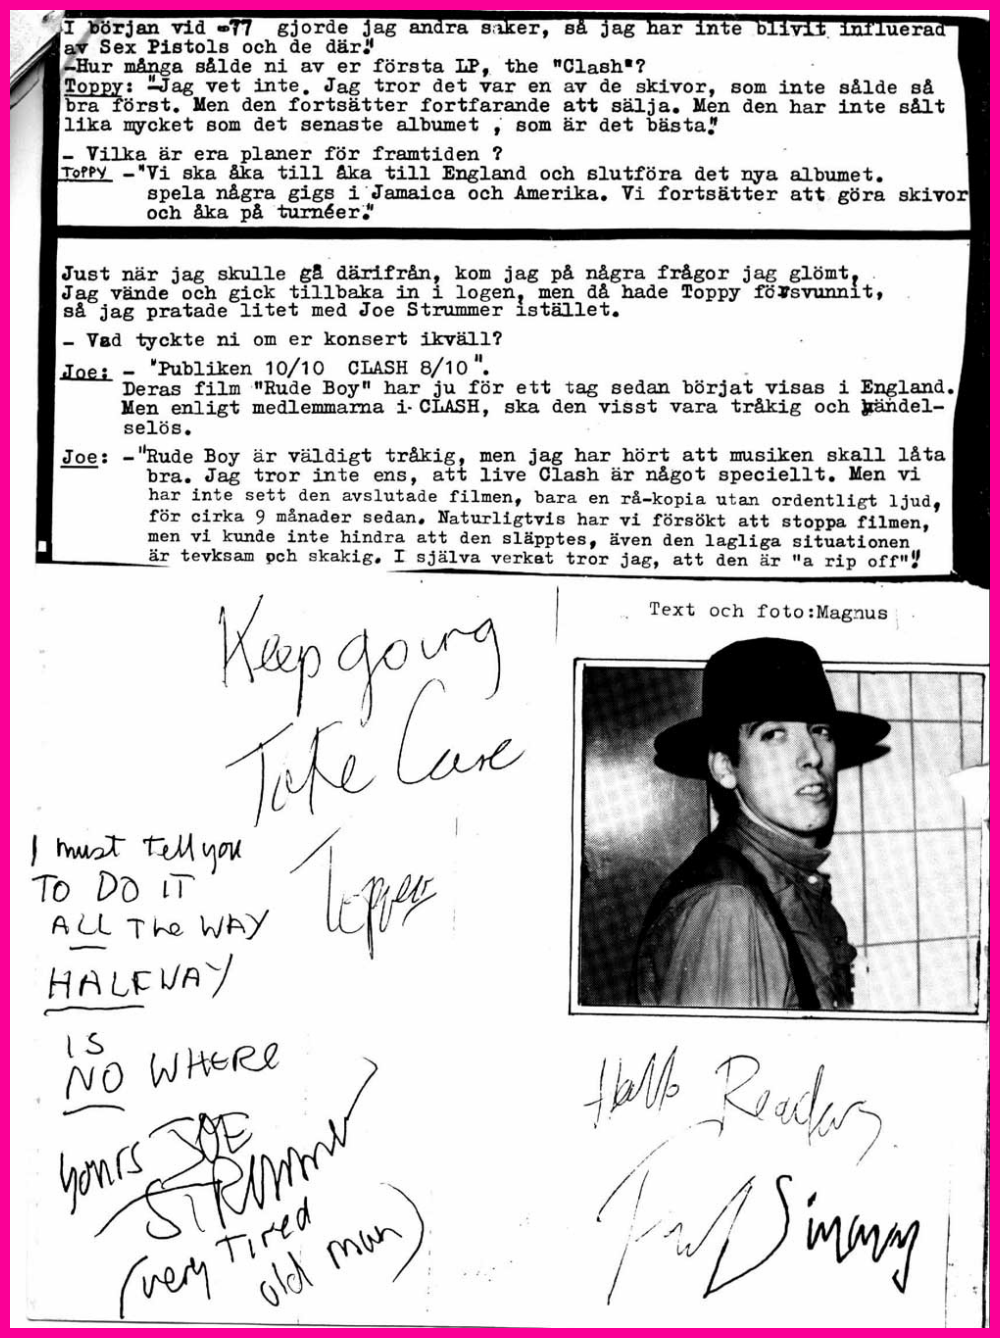 I början vid -77 gjorde jag andra saker, så jag har inte blivit influerad
av Sex Pistols och de där."
-Hur många sålde ni av er första LP, the "Clash"?
Toppy: -"Jag vet inte. Jag tror det var en av de skivor, som inte sålde så
bra först. Men den fortsätter fortfarande att sälja. Men den har inte sålt
lika mycket som det senaste albumet , som är det bästa."
- Vilka är era planer för framtiden ?
TOPPY -"Vi ska åka till åka till England och slutföra det nya albumet.
spela några gigs i Jamaica och Amerika. Vi fortsätter att göra skivor
och åka på turnéer."
Just när jag skulle gå därifrån, kom jag på några frågor jag glömt.
Jag vände och gick tillbaka in i logen, men då hade Toppy försvunnit,
så jag pratade litet med Joe Strummer istället.
- Vad tyckte ni om er konsert ikväll?
Joe: - "Publiken 10/10 CLASH 8/10".
Deras film "Rude Boy" har ju för ett tag sedan börjat visas i England.
Men enligt medlemmarna i CLASH, ska den visst vara tråkig och händel-
selös.
Joe: -"Rude Boy är väldigt tråkig, men jag har hört att musiken skall låta
bra. Jag tror inte ens, att live Clash är något speciellt. Men vi
har inte sett den avslutade filmen, bara en rå-kopia utan ordentligt ljud,
för cirka 9 månader sedan. Naturligtvis har vi försökt att stoppa filmen,
men vi kunde inte hindra att den släpptes, även den lagliga situationen
är tevksam och skakig. I själva verket tror jag, att den är "a rip off"."
Text och foto:Magnus
Keep going
Take Care
Topper
I must tell you
TO DO IT
ALL The WAY
HALFWAY
IS
NO WHERE
yours JOE
STRUMMER
(very Tired
old man)
Hello Readers
Paul Simonon